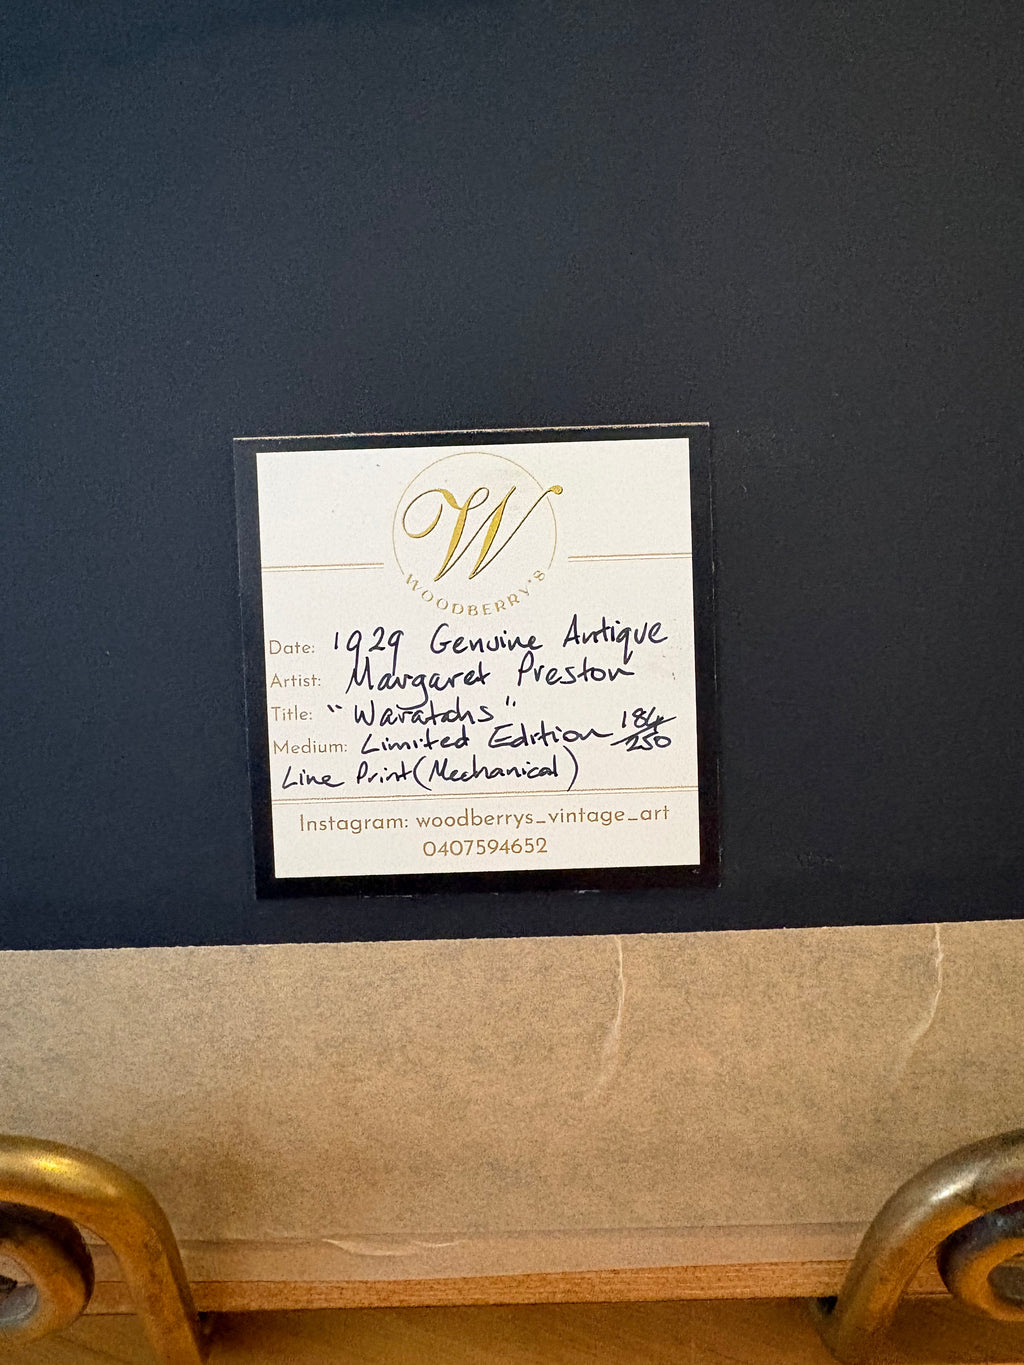 W
WOODBERRY'S
Date: 1929 Genuine Antique
Artist: Margaret Preston
Title: "Waratahs"
Medium: Limited Edition 184/250
Line Print (Mechanical)
Instagram: woodberrys_vintage_art
0407594652